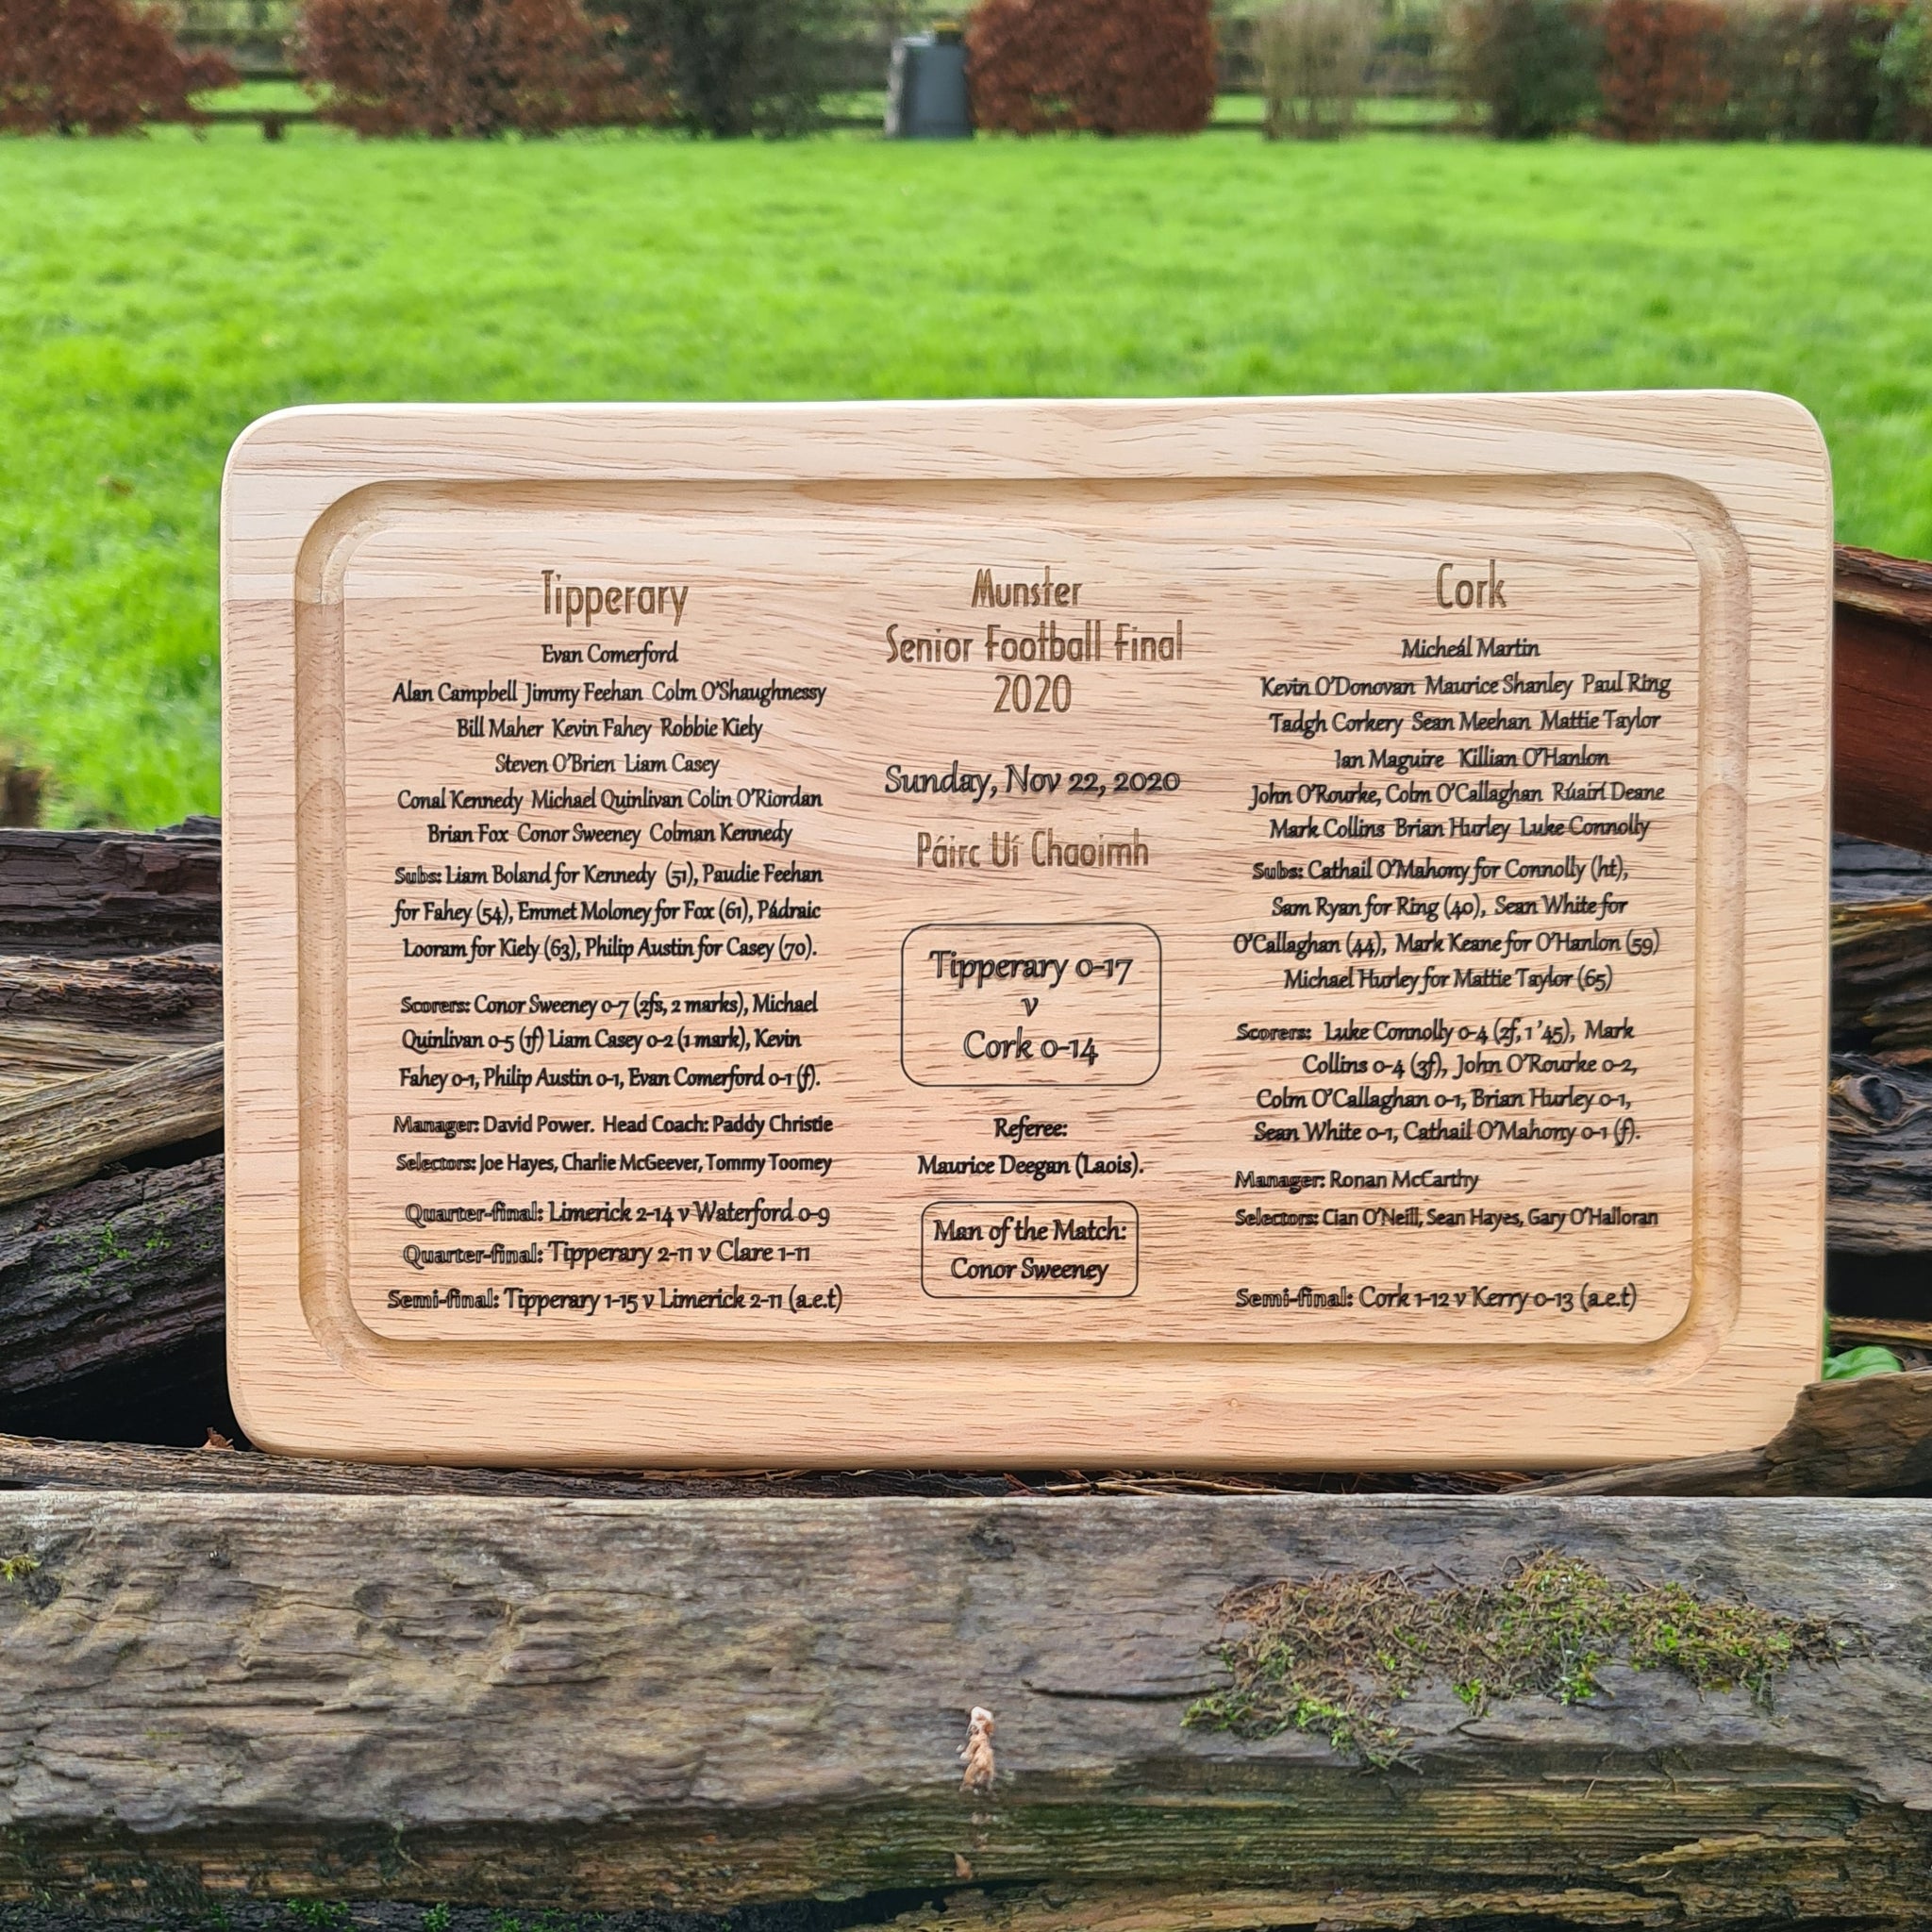 Tipperary
Evan Comerford
Alan Campbell Jimmy Feehan Colm O'Shaughnessy
Bill Maher Kevin Fahey Robbie Kiely
Steven O'Brien Liam Casey
Conal Kennedy Michael Quinlivan Colin O'Riordan
Brian Fox Conor Sweeney Colman Kennedy
Subs: Liam Boland for Kennedy (51), Paudie Feehan
for Fahey (54), Emmet Moloney for Fox (61), Pádraic
Looram for Kiely (63), Philip Austin for Casey (70).
Scorers: Conor Sweeney 0-7 (2fs, 2 marks), Michael
Quinlivan 0-5 (1f) Liam Casey 0-2 (1 mark), Kevin
Fahey 0-1, Philip Austin 0-1, Evan Comerford 0-1 (f).
Manager: David Power. Head Coach: Paddy Christie
Selectors: Joe Hayes, Charlie McGeever, Tommy Toomey
Quarter-final: Limerick 2-14 v Waterford 0-9
Quarter-final: Tipperary 2-11 v Clare 1-11
Semi-final: Tipperary 1-15 v Limerick 2-11 (a.e.t)
Munster
Senior Football Final
2020
Sunday, Nov 22, 2020
Páirc Uí Chaoimh
Tipperary 0-17
v
Cork 0-14
Referee:
Maurice Deegan (Laois).
Man of the Match:
Conor Sweeney
Cork
Micheál Martin
Kevin O'Donovan Maurice Shanley Paul Ring
Tadgh Corkery Sean Meehan Mattie Taylor
Ian Maguire Killian O'Hanlon
John O'Rourke, Colm O'Callaghan Rúairí Deane
Mark Collins Brian Hurley Luke Connolly
Subs: Cathail O'Mahony for Connolly (ht),
Sam Ryan for Ring (40), Sean White for
O'Callaghan (44), Mark Keane for O'Hanlon (59)
Michael Hurley for Mattie Taylor (65)
Scorers: Luke Connolly 0-4 (2f, 1 '45), Mark
Collins 0-4 (3f), John O'Rourke 0-2,
Colm O'Callaghan 0-1, Brian Hurley 0-1,
Sean White 0-1, Cathail O'Mahony 0-1 (f).
Manager: Ronan McCarthy
Selectors: Cian O'Neill, Sean Hayes, Gary O'Halloran
Semi-final: Cork 1-12 v Kerry 0-13 (a.e.t)